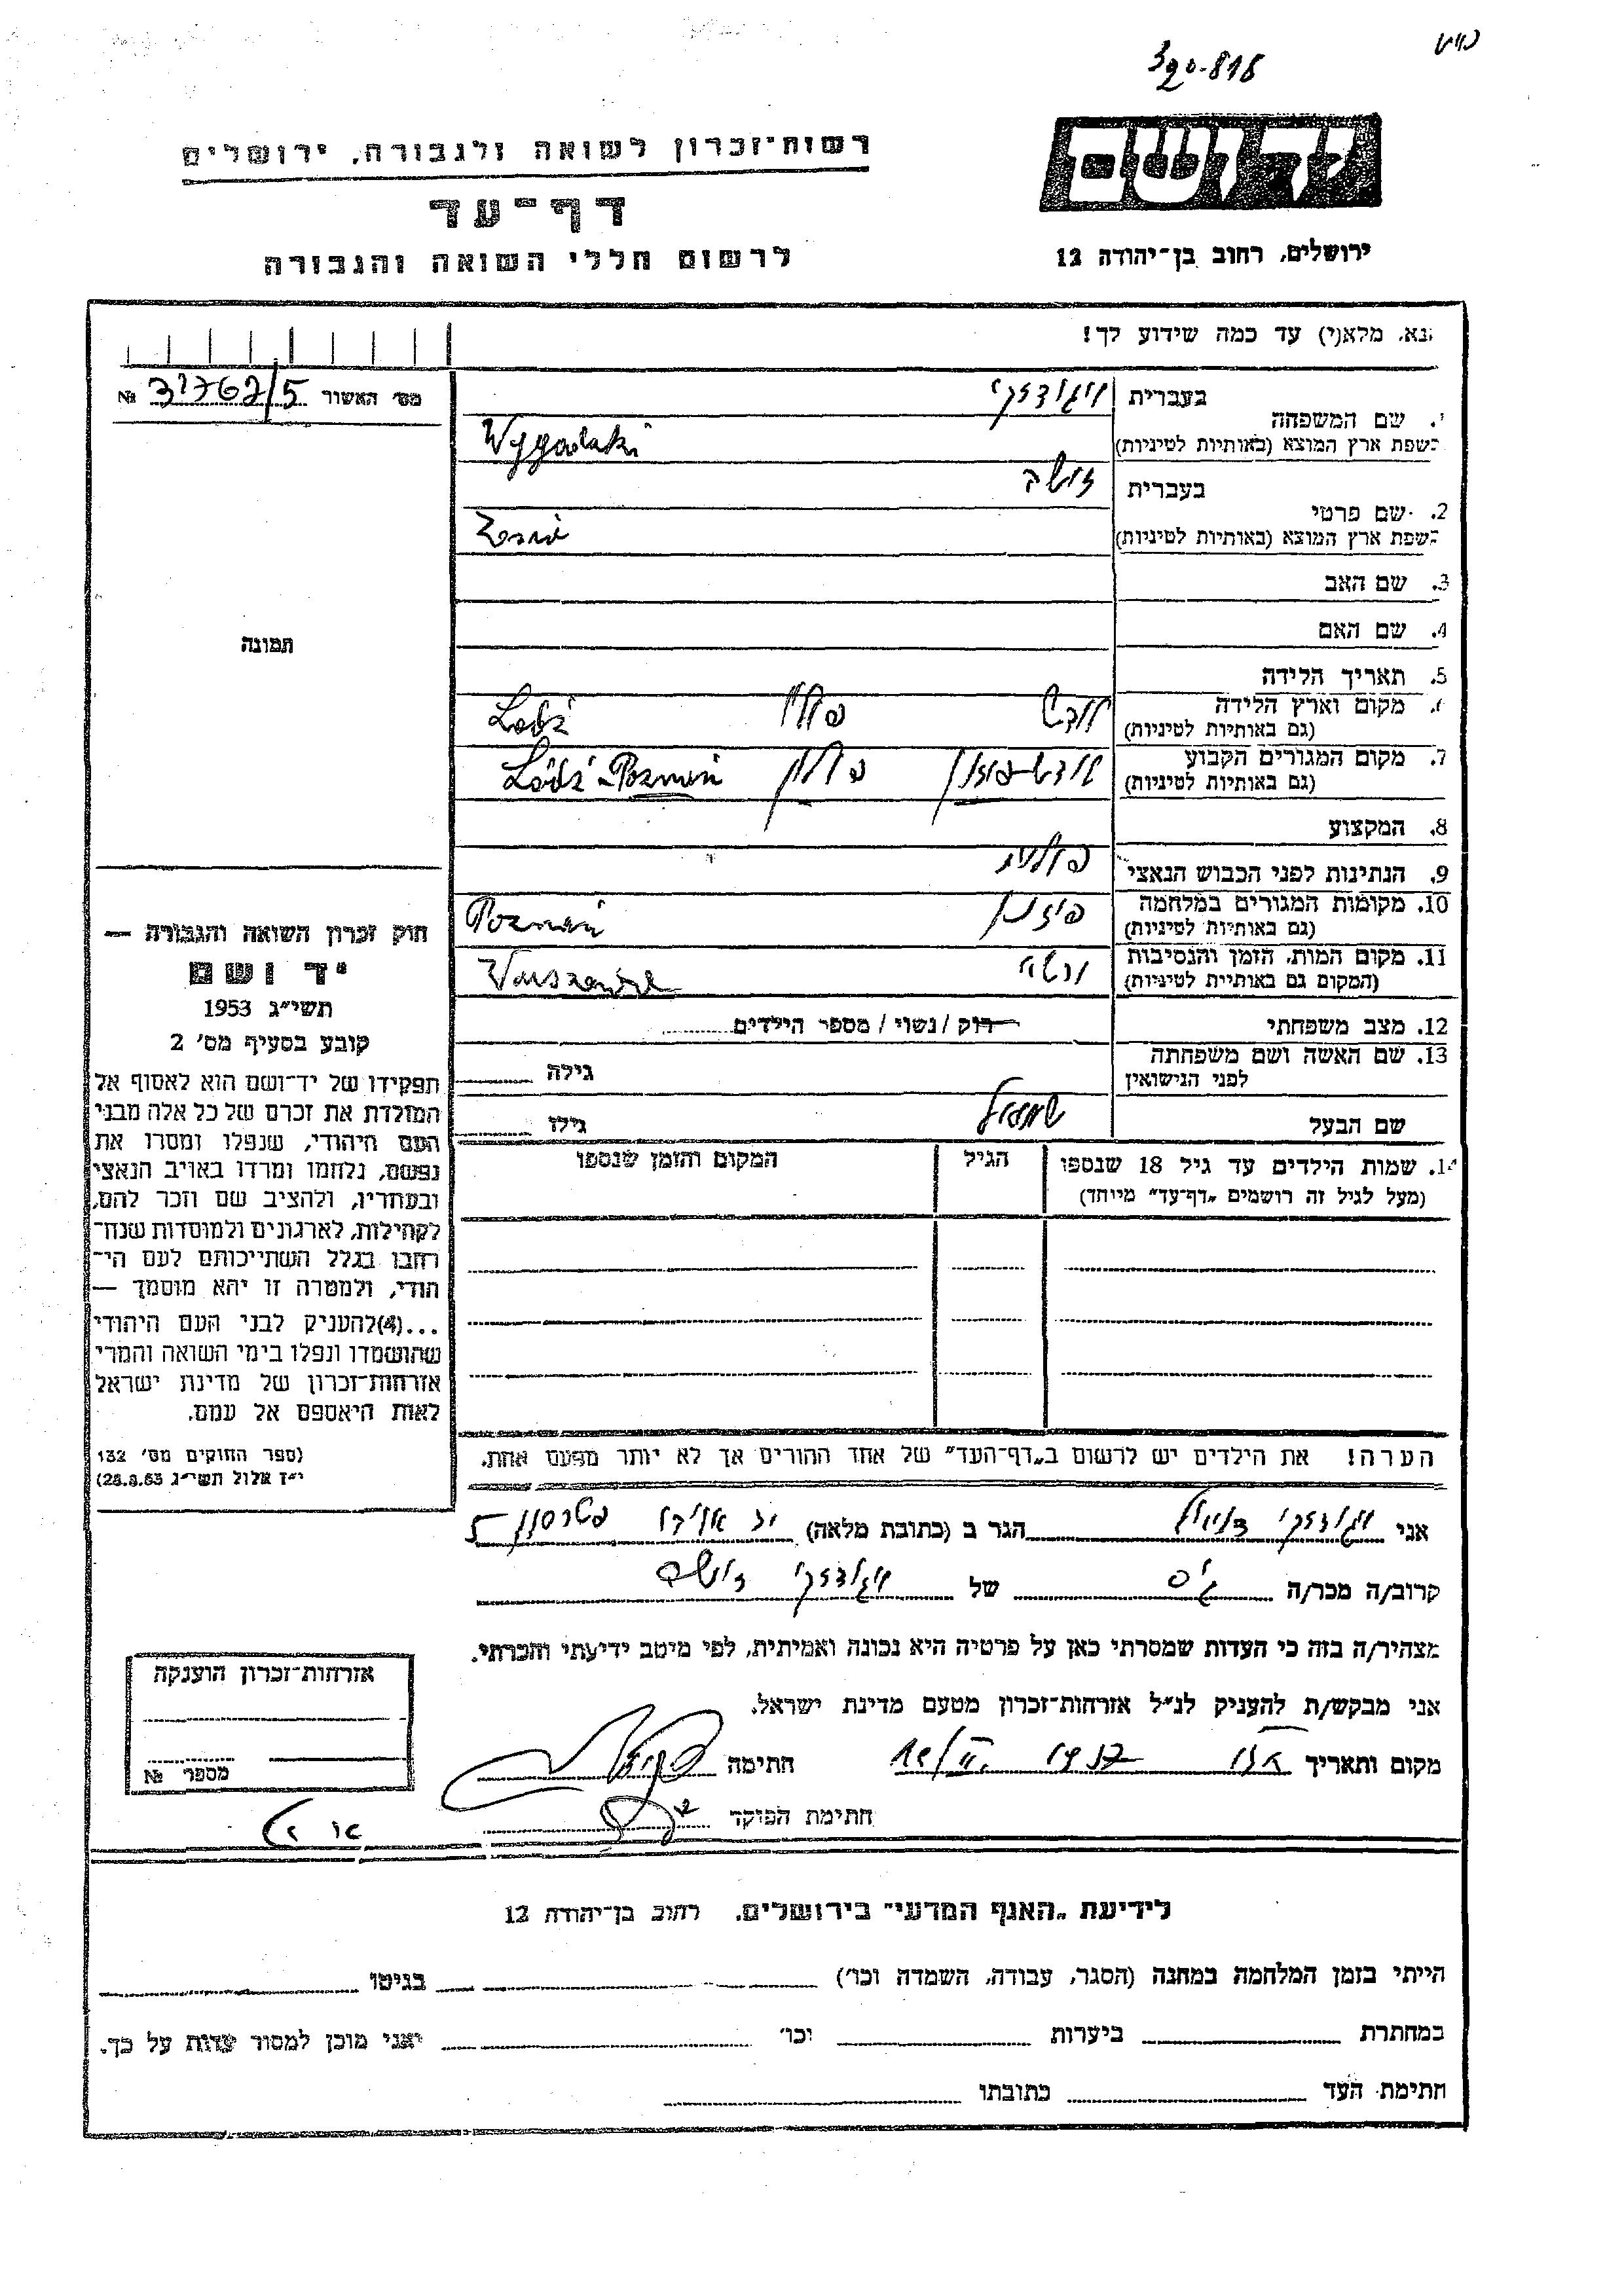 390-818
יד ושם
ירושלים, רחוב בן־יהודה 12
רשות־זכרון לשואה ולגבורה, ירושלים
דף־עד
לרשום חללי השואה והגבורה
נא, מלא(י) עד כמה שידוע לך!
מס׳ האשור 5/31762 №
1. שם המשפחה בעברית ויגודזקי
בשפת ארץ המוצא (באותיות לטיניות) Wygodzki
2. שם פרטי בעברית זושה
בשפת ארץ המוצא (באותיות לטיניות)
3. שם האב
4. שם האם
5. תאריך הלידה
6. מקום וארץ הלידה לודז׳ פולין Łodź
(גם באותיות לטיניות)
7. מקום המגורים הקבוע לודז׳־פוזנן פולין Łódź-Poznań
(גם באותיות לטיניות)
8. המקצוע
9. הנתינות לפני הכבוש הנאצי פולנית
10. מקומות המגורים במלחמה פוזנן Poznań
(גם באותיות לטיניות)
11. מקום המות, הזמן והנסיבות ורשה Warszawa
(המקום גם באותיית לטיניות)
12. מצב משפחתי רוק / נשוי / מספר הילדים
13. שם האשה ושם משפחתה גילה
לפני הנישואין
שם הבעל שמואל גילו
14. שמות הילדים עד גיל 18 שנספו הגיל המקום והזמן שנספו
(מעל לגיל זה רושמים „דף־עד״ מיוחד)
תמונה
חוק זכרון השואה והגבורה —
יד ושם
תשי״ג 1953
קובע בסעיף מס׳ 2
תפקידו של יד־ושם הוא לאסוף אל
המולדת את זכרם של כל אלה מבני
העם היהודי, שנפלו ומסרו את
נפשם, נלחמו ומרדו באויב הנאצי
ובעוזריו, ולהציב שם וזכר להם,
לקהילות, לארגונים ולמוסדות שנח־
רבו בגלל השתייכותם לעם הי־
הודי, ולמטרה זו יהא מוסמך —
...(4)להעניק לבני העם היהודי
שהושמדו ונפלו בימי השואה והמרי
אזרחות־זכרון של מדינת ישראל
לאות היאספם אל עמם.
(ספר החוקים מס׳ 132
י״ז אלול תשי״ג 28.8.53)
הערה! את הילדים יש לרשום ב„דף־העד״ של אחד ההורים אך לא יותר מפעם אחת.
אני ויגודזקי דניאל הגר ב (כתובת מלאה) יד אליהו פטרסון 5
קרוב/ה מכר/ה גיס של ויגודזקי זושה
מצהיר/ה בזה כי העדות שמסרתי כאן על פרטיה היא נכונה ואמיתית, לפי מיטב ידיעתי והכרתי.
אני מבקש/ת להעניק לנ״ל אזרחות־זכרון מטעם מדינת ישראל.
מקום ותאריך חתימה
חתימת הפוקד
אזרחות־זכרון הוענקה
מספר №
לידיעת „האגף המדעי״ בירושלים, רחוב בן־יהודה 12
הייתי בזמן המלחמה במחנה (הסגר, עבודה, השמדה וכו׳) בגיטו
במחתרת ביערות וכו׳ ואני מוכן למסור עדות על כך.
חתימת העד כתובתו